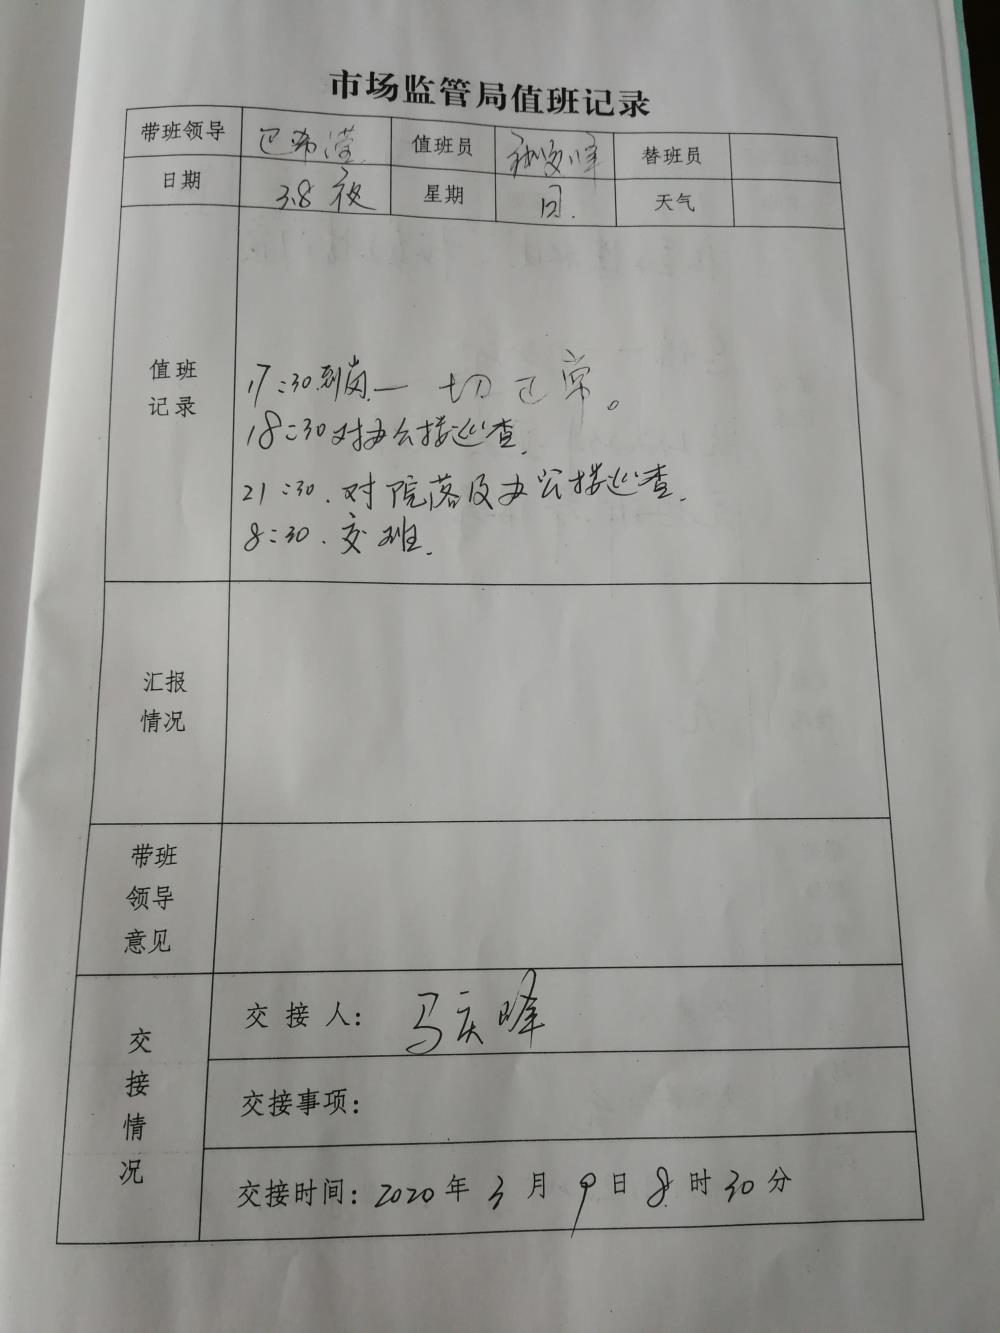 市场监管局值班记录
带班领导 巴希滢 值班员 替班员
日期 3.8夜 星期 日. 天气
值班
记录
17:30到岗一切正常。
18:30对办公楼巡查.
21:30.对院落及办公楼巡查.
8:30.交班.
汇报
情况
带班
领导
意见
交
接
情
况
交接人: 马庆峰
交接事项:
交接时间: 2020年3月9日8时30分